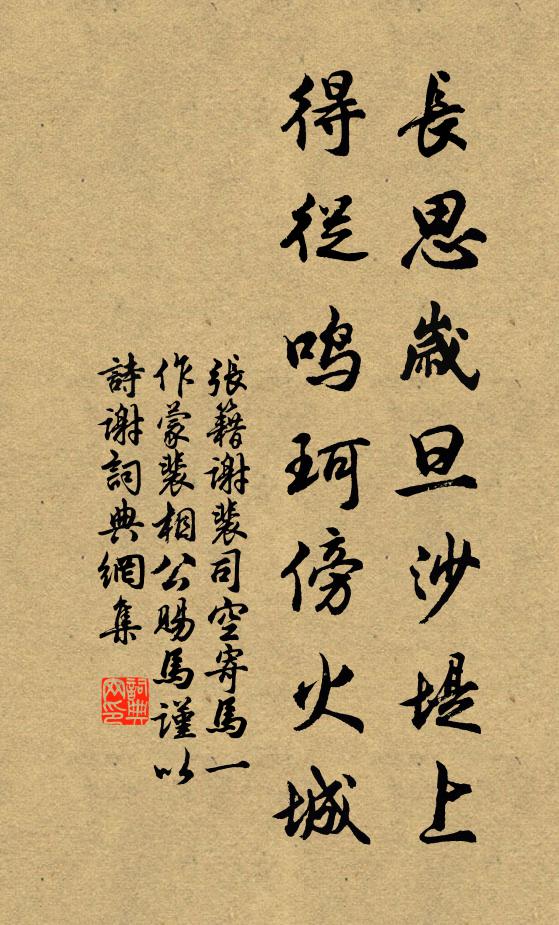 長思歲旦沙堤上
得從鳴珂傍火城
張籍謝裴司空寄馬一
作蒙裴相公賜馬謹以
詩謝詞典網集
詞典
网印